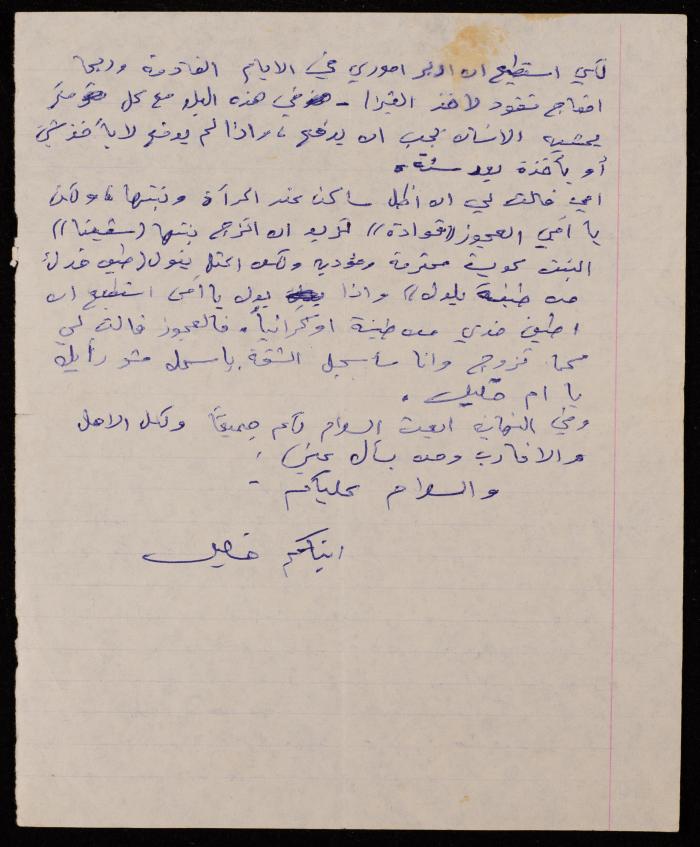 لكي استطيع ان ادبر اموري في الايام القادمة وربما
احتاج نقود لاخذ الفيزا - في هذه البلد مع كل متر
يمشيه الانسان يجب ان يدفع، واذا لم يدفع لا يأخذ شيئ
أو يأخذه بعد سنة.
امي قالت لي ان اظل ساكن عند المرأة وبنتها، ولكن
يا أمي العجوز ((قوادة)) تريد ان اتزوج بنتها (سفيتا))
البنت كويسة محترمة ومؤدبه ولكن المثل يقول (طين
من طينة بلدك)) واذا يا أمي استطيع ان
اطين خدي من طينة اوكرانيا. فالعجوز قالت لي
تزوج وانا سأسجل الشقة باسمك شو رأيك
يا ام خليل.
وفي النهاية ابعث السلام لكم جميعاً ولكل الاهل
والاقارب ومن يسأل عني،
والسلام عليكم -
ابنكم خليل